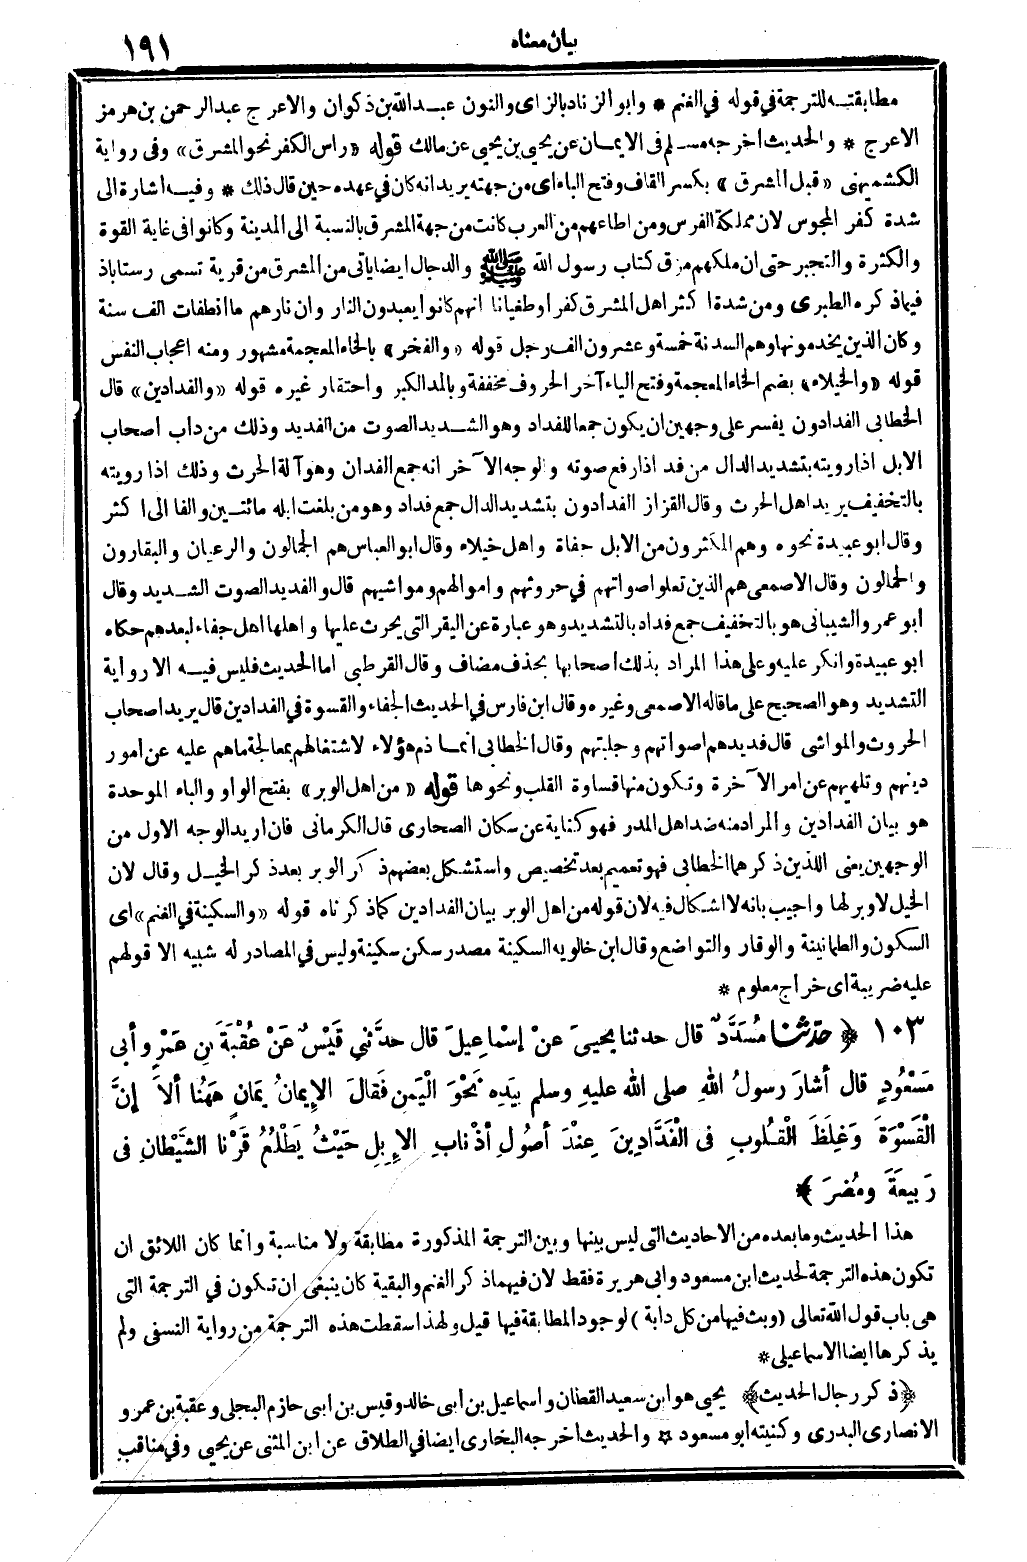 بيان معناه
١٩١
مطابقته للترجمة في قوله في الغنم * وابو الزناد بالزاى والنون عبد الله بن ذكوان والاعرج عبد الرحمن بن هرمز
الاعرج * والحديث اخرجه مسلم فى الايمان عن يحيى بن يحيى عن مالك قوله «راس الكفر نحو المشرق» وفى رواية
الكشميهنى «قبل المشرق» بكسر القاف وفتح الباء اى من جهته يريد انه كان في عهده حين قال ذلك * وفيه اشارة الى
شدة كفر المجوس لان مملكة الفرس ومن اطاعهم من العرب كانت من جهة المشرق بالنسبة الى المدينة وكانوا فى غاية القوة
والكثرة والتجبر حتى ان ملكهم مزق كتاب رسول الله ﷺ والدجال ايضا ياتى من المشرق من قرية تسمى رستاباذ
فيما ذكره الطبرى ومن شدة اكثر اهل المشرق كفرا وطغيانا انهم كانوا يعبدون النار وان نارهم ما انطفات الف سنة
وكان الذين يخدمونها وهم السدنة خمسة وعشرون الف رجل قوله «والفخر» بالخاء المعجمة مشهور ومنه اعجاب النفس
قوله «والخيلاء» بضم الخاء المعجمة وفتح الياء آخر الحروف مخففة وبالمد الكبر واحتقار غيره قوله «والفدادين» قال
الخطابى الفدادون يفسر على وجهين ان يكون جمعا للفداد وهو الشديد الصوت من الفديد وذلك من داب اصحاب
الابل اذا رويته بتشديد الدال من فد اذا رفع صوته والوجه الآخر انه جمع الفدان وهو آلة الحرث وذلك اذا رويته
بالتخفيف يريد اهل الحرث وقال القزاز الفدادون بتشديد الدال جمع فداد وهو من بلغت ابله مائتين والفا الى اكثر
وقال ابو عبيدة نحوه وهم المكثرون من الابل جفاة واهل خيلاء وقال ابو العباس هم الجمالون والرعيان والبقارون
والحمالون وقال الاصمعى هم الذين تعلو اصواتهم في حروثهم واموالهم ومواشيهم قال والفديد الصوت الشديد وقال
ابو عمرو الشيبانى هو بالتخفيف جمع فداد بالتشديد وهو عبارة عن البقر التى يحرث عليها واهلها اهل جفاء لبعدهم حكاه
ابو عبيدة وانكر عليه وعلى هذا المراد بذلك اصحابها بحذف مضاف وقال القرطبى اما الحديث فليس فيه الا رواية
التشديد وهو الصحيح على ما قاله الاصمعى وغيره وقال ابن فارس في الحديث الجفاء والقسوة في الفدادين قال يريد اصحاب
الحروث والمواشى قال فديدهم اصواتهم وجلبتهم وقال الخطابى انما ذم هؤلاء لاشتغالهم بمعالجة ماهم عليه عن امور
دينهم وتلهيهم عن امر الآخرة وتكون منها قساوة القلب ونحوها قوله «من اهل الوبر» بفتح الواو والباء الموحدة
هو بيان الفدادين والمراد منه ضد اهل المدر فهو كناية عن سكان الصحارى قال الكرمانى فان اريد الوجه الاول من
الوجهين يعنى اللذين ذكرهما الخطابى فهو تعميم بعد تخصيص واستشكل بعضهم ذكر الوبر بعد ذكر الخيل وقال لان
الخيل لا وبر لها واجيب بانه لا اشكال فيه لان قوله من اهل الوبر بيان الفدادين كما ذكرناه قوله «والسكينة في الغنم» اى
السكون والطمانينة والوقار والتواضع وقال ابن خالويه السكينة مصدر سكن سكينة وليس في المصادر له شبيه الا قولهم
عليه ضريبة اى خراج معلوم *
١٠٣ ﴿ حَدَّثَنَا مُسَدَّدٌ قال حدثنا يحيىَ عنْ إسْماعِيلَ قال حدَّثَني قَيْسٌ عَنْ عُقْبَةَ بنِ عَمْرٍو أبى
مَسْعُودٍ قال أشارَ رسولُ اللهِ صلى الله عليهِ وسلم بِيَدِهِ نَحْوَ الْيَمَنِ فَقالَ الإيمانُ يَمَانٍ هَهُنَا ألاَ إنَّ
الْقَسْوَةَ وَغِلَظَ الْقُلُوبِ فى الْفَدَّادِينَ عِنْدَ أصُولِ أذْنابِ الإبِلِ حَيْثُ يَطْلُعُ قَرْنَا الشَّيْطَانِ فى
رَبِيعَةَ ومُضَرَ ﴾ *
هذا الحديث وما بعده من الاحاديث التى ليس بينها وبين الترجمة المذكورة مطابقة ولا مناسبة وانما كان اللائق ان
تكون هذه الترجمة لحديث ابن مسعود وابى هريرة فقط لان فيهما ذكر الغنم والبقية كان ينبغى ان تكون في الترجمة التى
هى باب قول الله تعالى (وبث فيها من كل دابة) لوجود المطابقة فيها قيل ولهذا سقطت هذه الترجمة من رواية النسفى ولم
يذكرها ايضا الاسماعيلى *
﴿ذكر رجال الحديث﴾ يحيى هو ابن سعيد القطان واسماعيل بن أبى خالد وقيس بن ابى حازم البجلى وعقبة بن عمرو
الانصارى البدرى وكنيته ابو مسعود * والحديث اخرجه البخارى ايضا في الطلاق عن ابن المثنى عن يحيى وفي مناقب